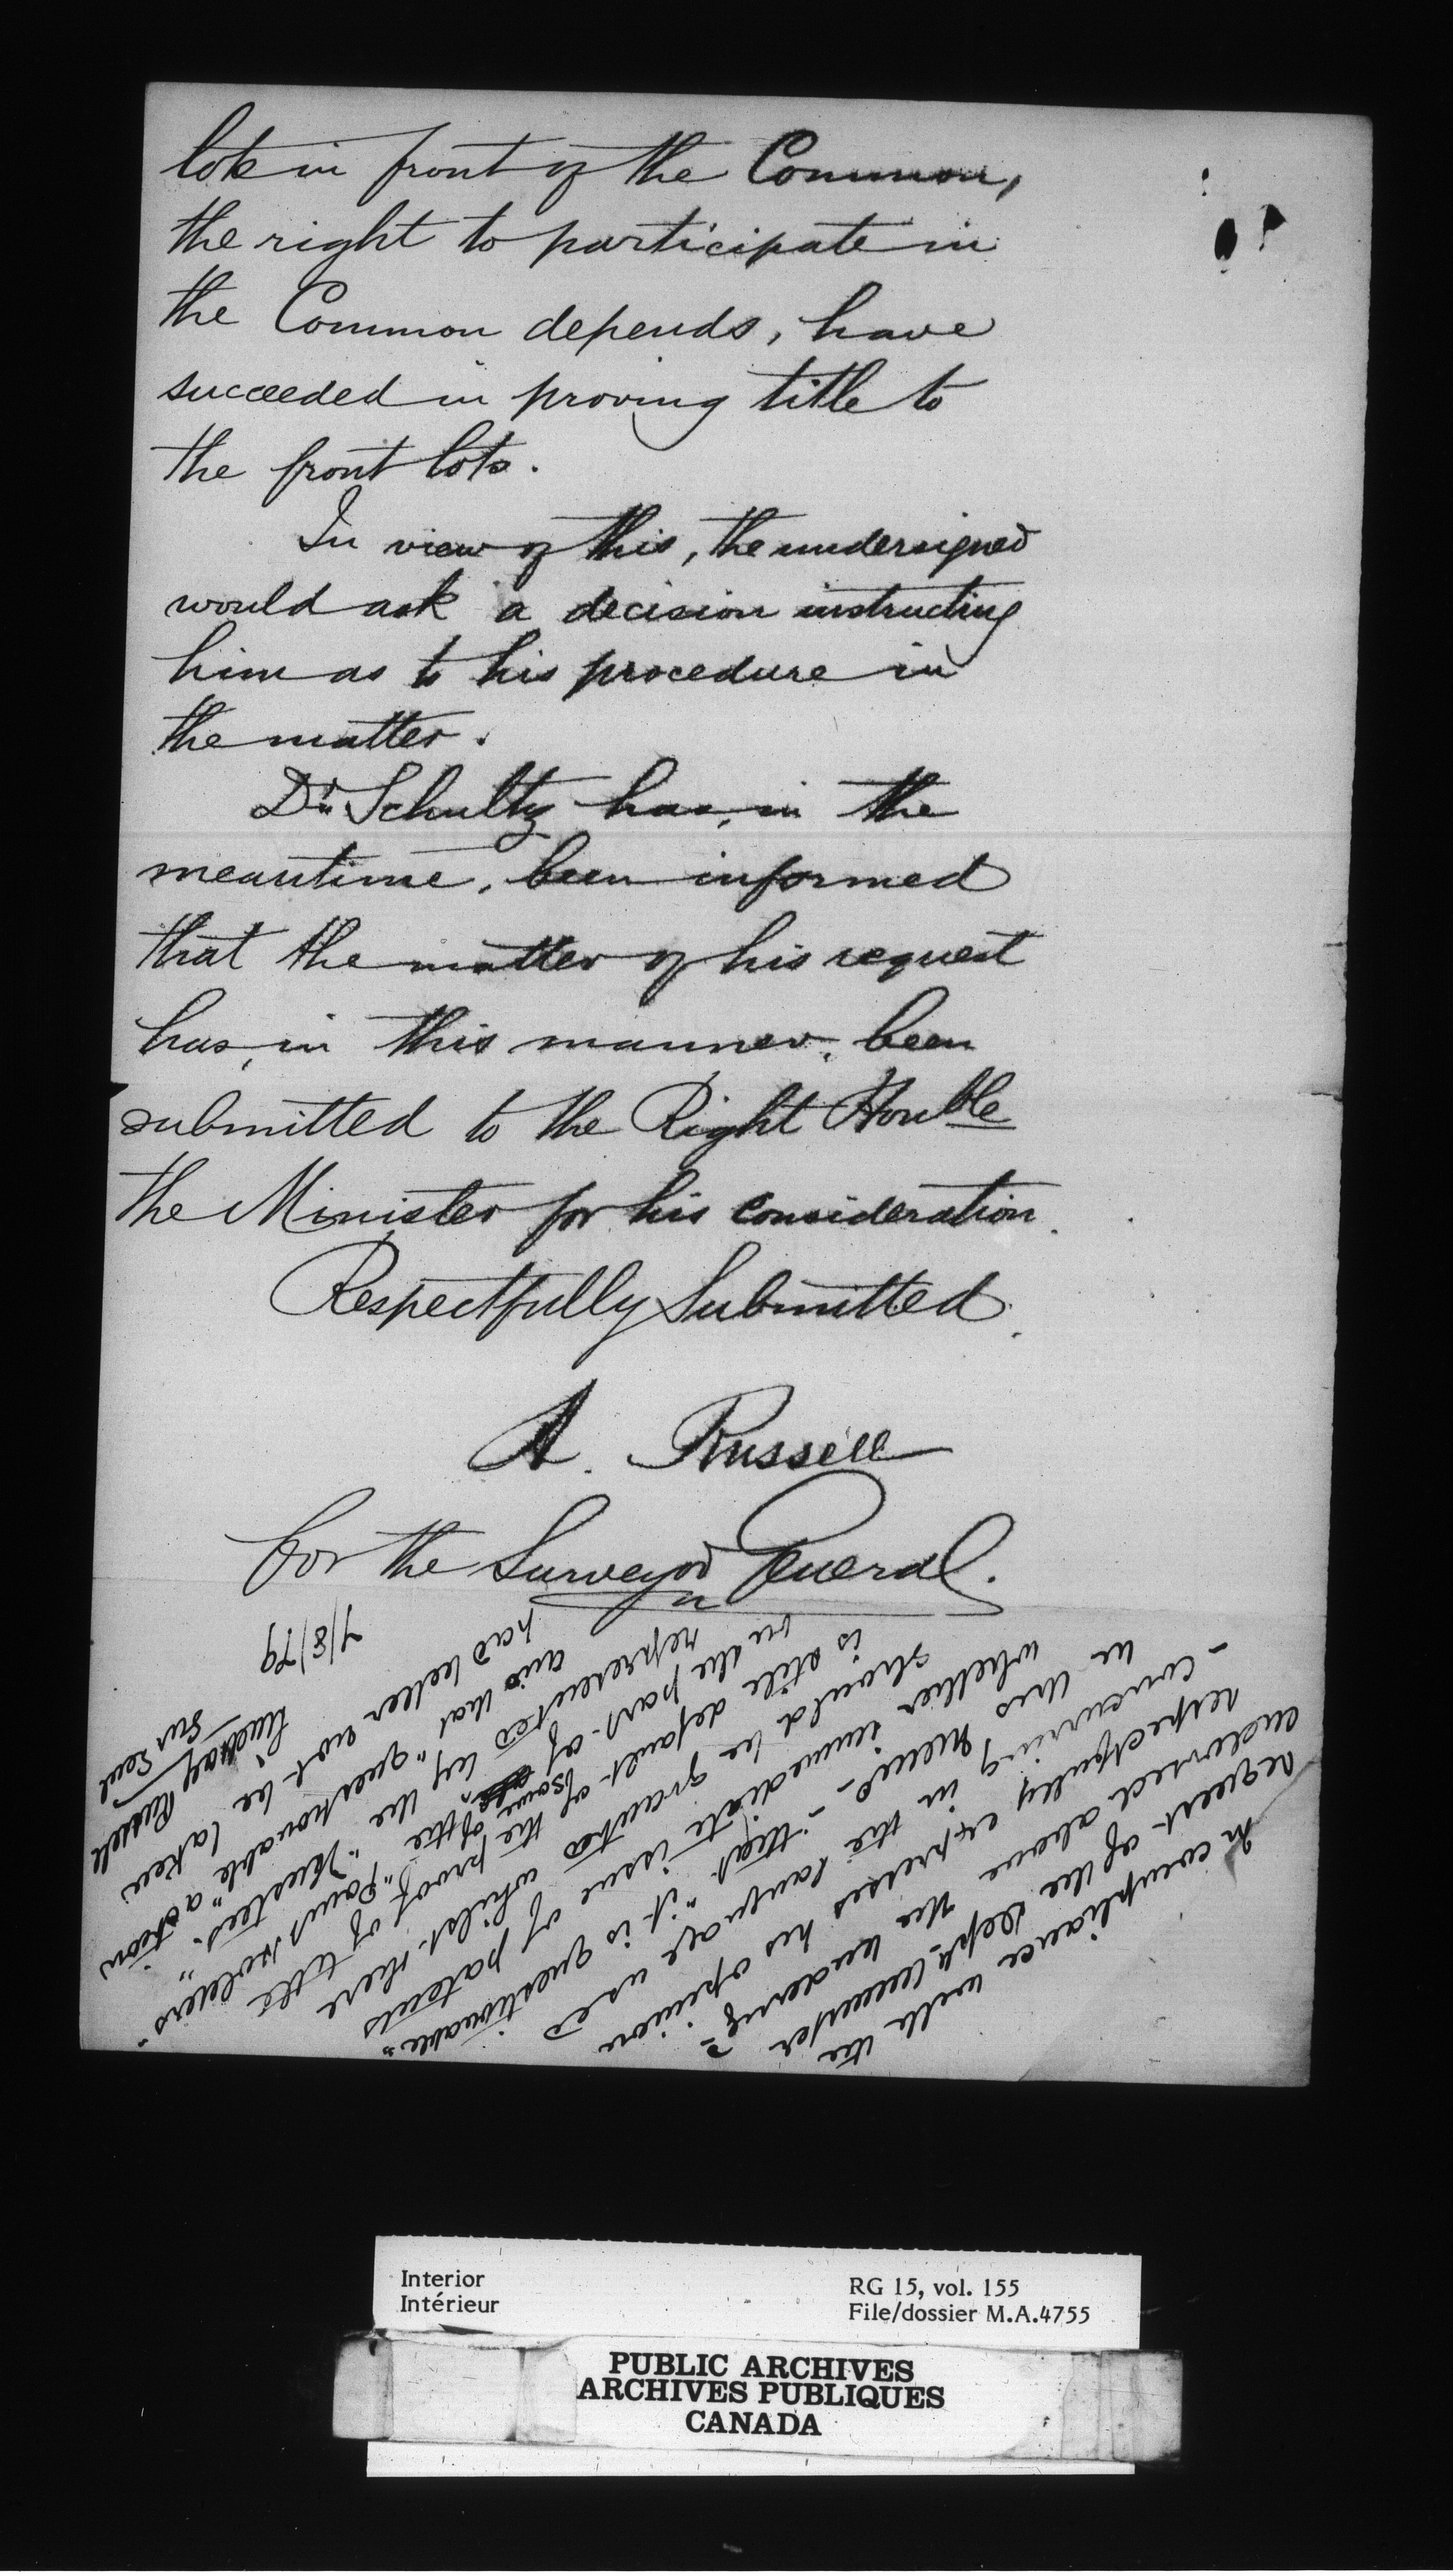 lots in front of the Common,
the right to participate in
the Common depends, have
succeeded in proving title to
the front lots.
In view of this, the undersigned
would ask a decision instructing
him as to his procedure in
the matter.
Dr. Schultz has, in the
meantime, been informed
that the matter of his request
has, in this manner, been
submitted to the Right Honble
the Minister for his consideration.
Respectfully Submitted.
A. Russell
for the Surveyor General.
In compliance with the
request of the Depy. Minister
endorsed above the undersg-
respectfully expresses his opinion
- concurring in the language used
"it is questionable"
whether immediate issue of patents
should be granted whilst there
is still default of the proof of title
on the part of some of the "Point holders"
represented by the "Trustees"
and that "questionable" action
had better not be taken
Lindsay Russell
Sur Genl
7/8/79
Interior
Intérieur
RG 15, vol. 155
File/dossier M.A.4755
PUBLIC ARCHIVES
ARCHIVES PUBLIQUES
CANADA